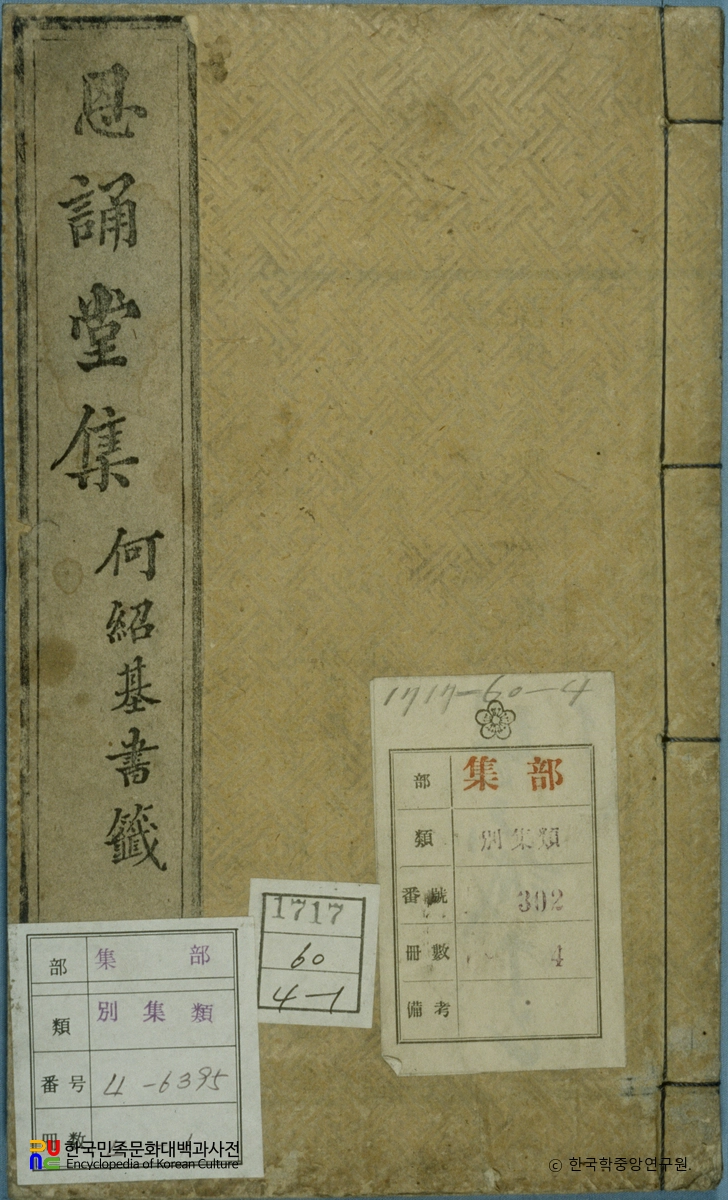 恩誦堂集
何紹基書籤
1717-60-4
部 集部
類 別集類
番號 392
冊數 4
備考
1717
60
4-1
部 集部
類 別集類
番号 4-6395
冊数
한국민족문화대백과사전
Encyclopedia of Korean Culture
© 한국학중앙연구원.